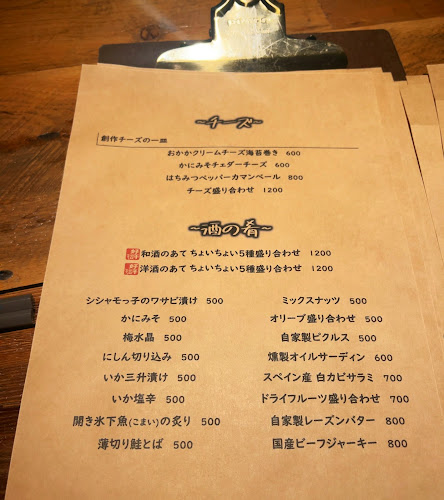 ~チーズ~
創作チーズの一皿
おかかクリームチーズ海苔巻き 600
かにみそチェダーチーズ 600
はちみつペッパーカマンベール 800
チーズ盛り合わせ 1200
~酒の肴~
和酒のあて ちょいちょい5種盛り合わせ 1200
洋酒のあて ちょいちょい5種盛り合わせ 1200
シシャモっ子のワサビ漬け 500
かにみそ 500
梅水晶 500
にしん切り込み 500
いか三升漬け 500
いか塩辛 500
開き氷下魚(こまい)の炙り 500
薄切り鮭とば 500
ミックスナッツ 500
オリーブ盛り合わせ 500
自家製ピクルス 500
燻製オイルサーディン 600
スペイン産 白カビサラミ 700
ドライフルーツ盛り合わせ 700
自家製レーズンバター 800
国産ビーフジャーキー 800